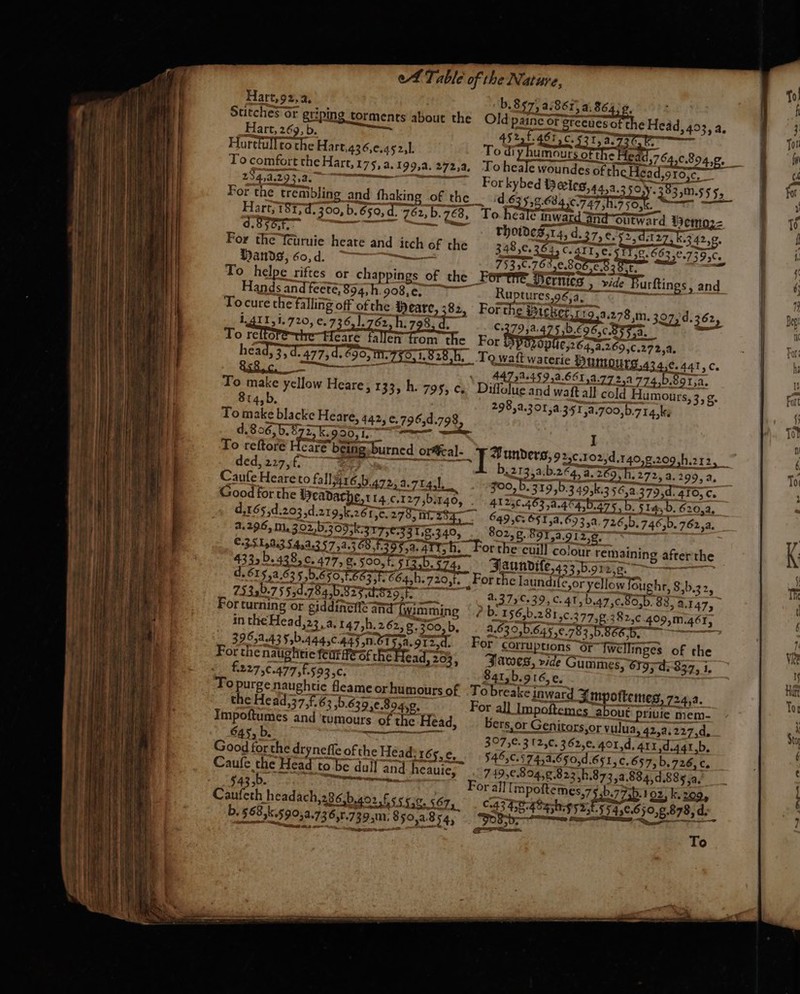 A Table of the Nature,
Hart, 92, a.
Stitches or griping torments about the
Hart, 269, b.
Hurtfull to the Hart, 436, e. 452, l.
To comfort the Hart, 175, a. 199, a. 272, a,
284, a. 293, a.
For the trembling and shaking of the
Hart, 181, d. 300, b. 650, d. 762, b. 768,
d. 850, f.
For the scuruie heate and itch of the
Hands, 60, d.
To helpe riftes or chappings of the
Hands and feete, 894, h. 908, e.
To cure the falling off of the Heare, 382,
i. 411, i. 720, c. 736, l. 762, h. 798, d.
To restore the Heare fallen from the
head, 3, d. 477, d. 690, m. 750, i. 828, h.
858, c.
To make yellow Heare, 133, h. 795, c.
814, b.
To make blacke Heare, 442, e. 796, d. 798,
d. 806, b. 872, k. 900, i.
To restore Heare being burned or scal-
ded, 227, f.
Cause Heare to fall, 416, b. 472, a. 714, l.
Good for the Headache, 114. c. 127, b. 140,
d. 165, d. 203, d. 219, k. 261, e. 278, m. 284,
a. 296, m. 302, b. 309, k. 317, e. 331, g. 340,
e. 351, a. 354, a. 357, a. 368, f. 395, a. 411, h.
433, b. 438, c. 477, g. 500, f. 513, b. 574,
d. 615, a. 635, b. 650, f. 663, f. 664, h. 720, f.
753, b. 755, d. 784, b. 825, d. 829, f.
For turning or giddinesse and swimming
in the Head, 23, a. 147, h. 262, g. 300, b,
396, a. 435, b. 444, c. 445, n. 615, a. 912, d.
For the naughtie scurffe of the Head, 203,
f. 227, c. 477, f. 593, c.
To purge naughtie fleame or humours of
the Head, 37, f. 63, b. 639, e. 894, g.
Impostumes and tumours of the Head,
645, b.
Good for the drynesse of the Head: 165, e.
Cause the Head to be dull and heauie,
543, b.
Causeth headach, 286, b. 402, f. 555, g. 567,
b. 568, k. 590, a. 736, l. 739, m. 850, a. 854,
b. 857, a. 861, a. 864, g.
Old paine or greeues of the Head, 403, a.
452, f. 461, c. 531, a. 736, k.
To dry humours of the Head, 764, c. 894, g.
To heale woundes of the Head, 910, c.
For kybed Heeles, 44, a. 350, y. 383, m. 555,
d. 635, g. 684, e. 747, h. 750, k.
To heale inward and outward Hemorz-
rhoides, 14, d. 37, e. 52, d. 127, k. 342, g.
348, c. 364, c. 411, e. 511, g. 663, c. 739, c.
753, c. 763, e. 806, c. 838, f.
For the Hernies, vide Burstings, and
Ruptures, 96, a.
For the Hicket, 119, a. 278, m. 397, d. 362,
c. 379, a. 475, b. 696, c. 855, a.
For Hydropsie, 264, a. 269, c. 272, a.
To wast waterie Humours, 434, c. 441, c.
447, a. 459, a. 661, a. 772, a 774, b. 891, a.
Dissolue and wast all cold Humours, 3, g.
298, a. 301, a. 351, a. 700, b. 714, k.
I
Iaunders, 92, c. 102, d. 140, g. 209, h. 212,
b. 213, a. b. 264, a. 269, h. 272, a. 299, a,
300, b. 319, b. 349, k. 356, a. 379, d. 410, c.
412, c. 463, a. 464, b. 475, b. 514, b. 620, a,
649, c. 651, a. 693, a. 726, b. 746, b. 762, a.
802, g. 891, a. 912, g.
For the euill colour remaining after the
Iaundise, 433, b. 912, g.
For the Iaundise, or yellow sought, 8, b. 32,
a. 37, c. 39, c. 41, b. 47, c. 80, b. 88, a. 147,
b. 156, b. 281, c. 377, g. 382, c 409, m. 461,
a. 630, b. 645, c. 783, b. 866, b.
For corruptions or swellinges of the
Iawes, vide Gummes, 619, d. 837, i.
841, b. 916, e.
To breake inward Impostemes, 724, a.
For all Impostemes about priuie mem-
bers, or Genitors, or vulua, 42, a. 227, d.
307, c. 312, c. 362, c. 401, d. 411, d. 441, b.
546, c. 574, a. 650, d. 651, c. 657, b. 726, c.
749, c. 804, g. 823, h. 873, a. 884, d. 885, a.
For all Impostemes, 75, b. 77, b. 102, k. 209,
c. 434, g. 484, h. 552, f. 554, c. 650, g. 878, d.
908, b.
To